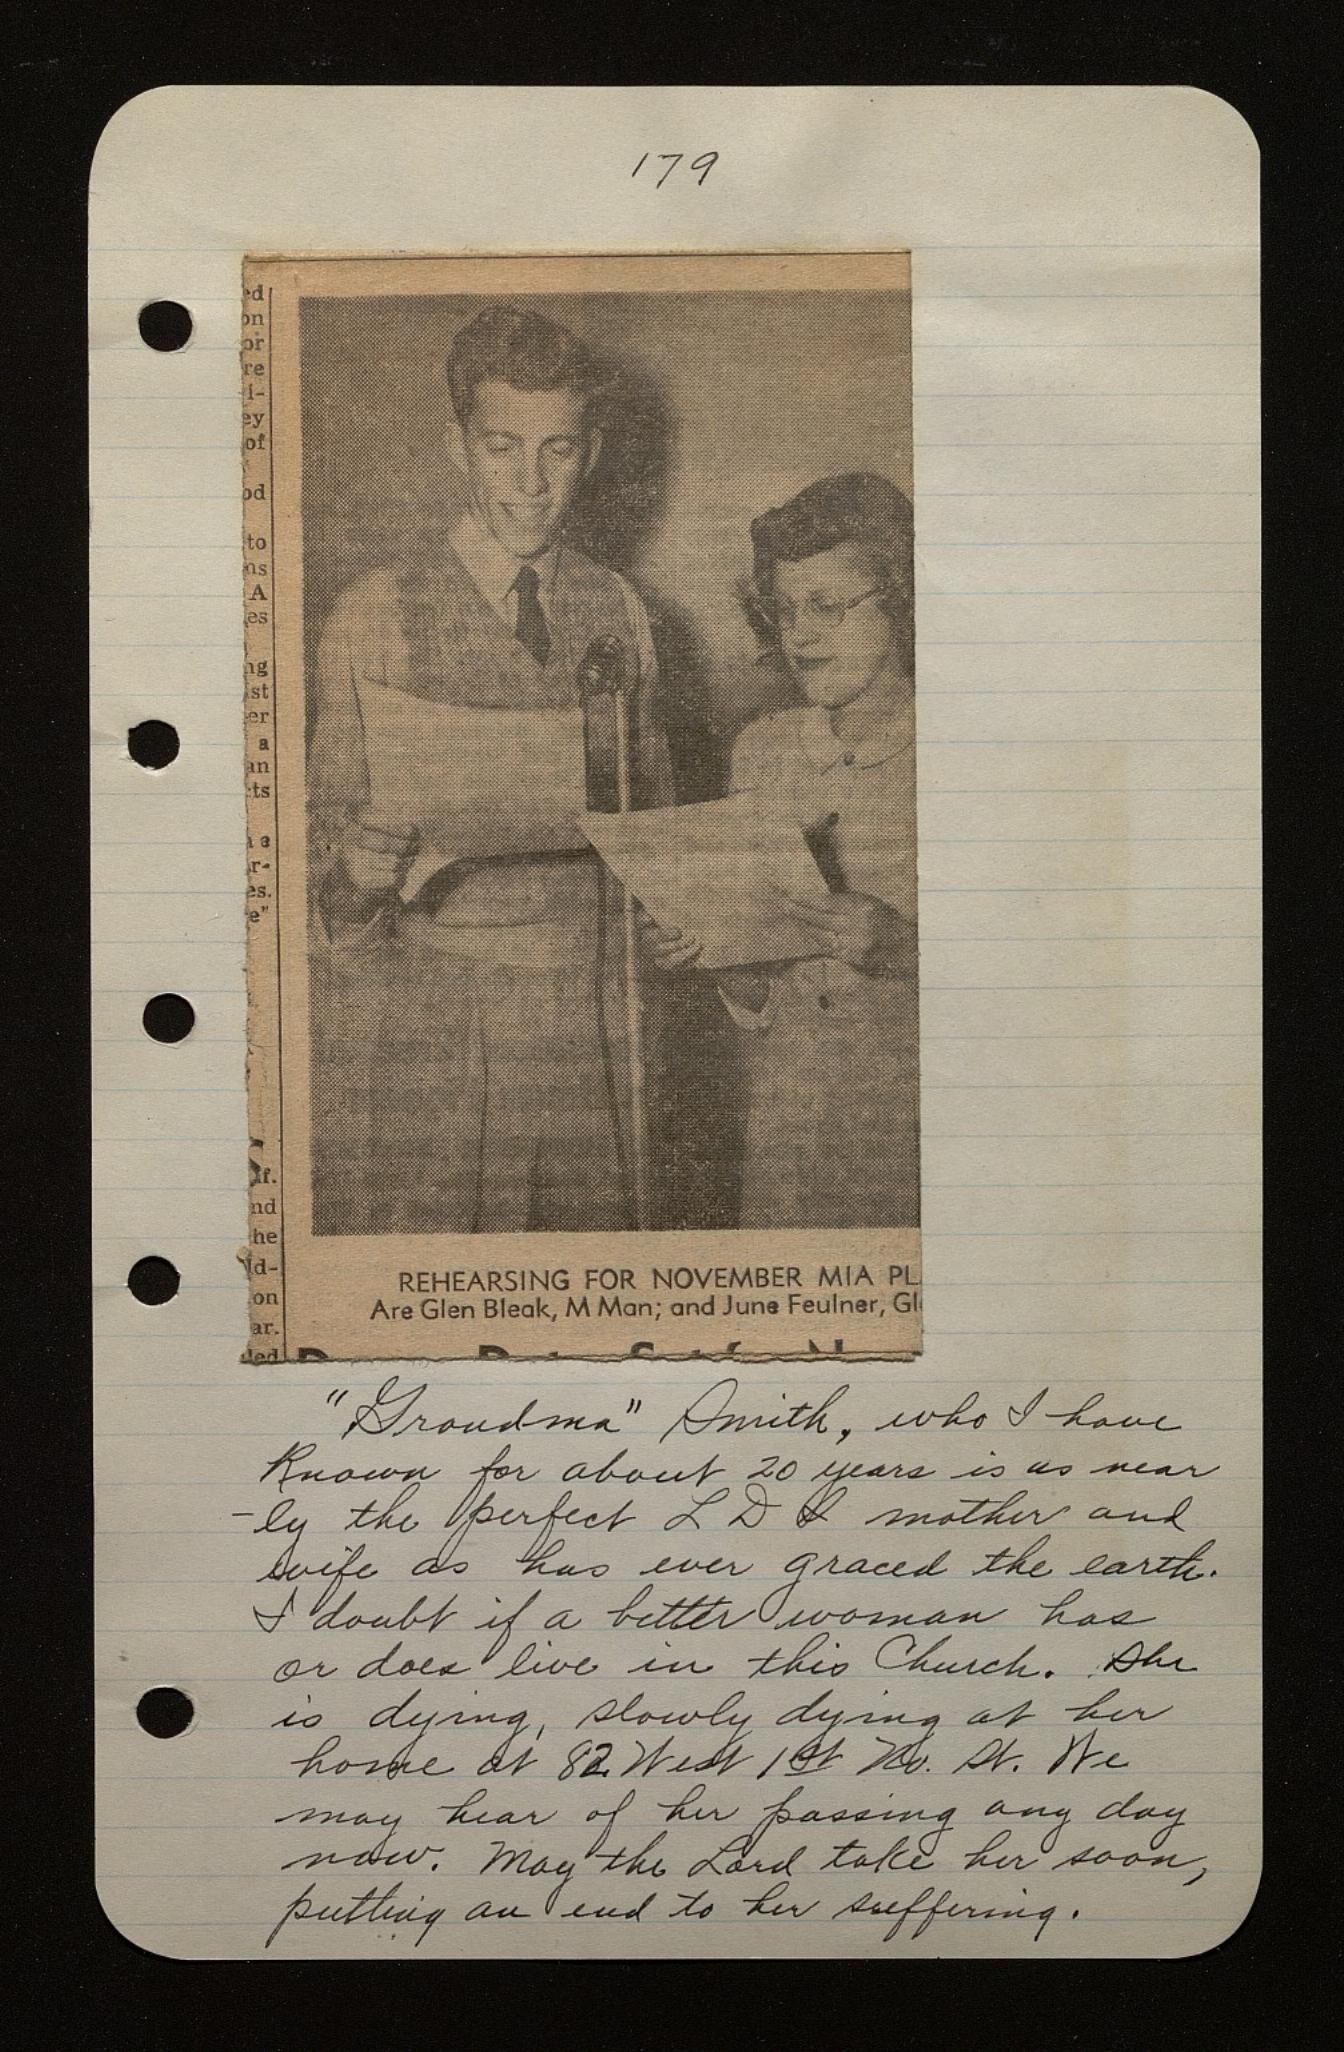 179
ed
on
or
re
i-
ey
of
od
to
ns
A
es
ng
st
er
a
an
cts
r-
es.
e"
if.
nd
he
ld-
on
ar.
led
REHEARSING FOR NOVEMBER MIA PL
Are Glen Bleak, M Man; and June Feulner, Gl
"Grandma" Smith, who I have
known for about 20 years is as near
-ly the perfect L D S mother and
wife as has ever graced the earth.
I doubt if a better woman has
or does live in this Church. She
is dying, slowly dying at her
home at 82 West 1st No. St. We
may hear of her passing any day
now. May the Lord take her soon,
putting an end to her suffering.